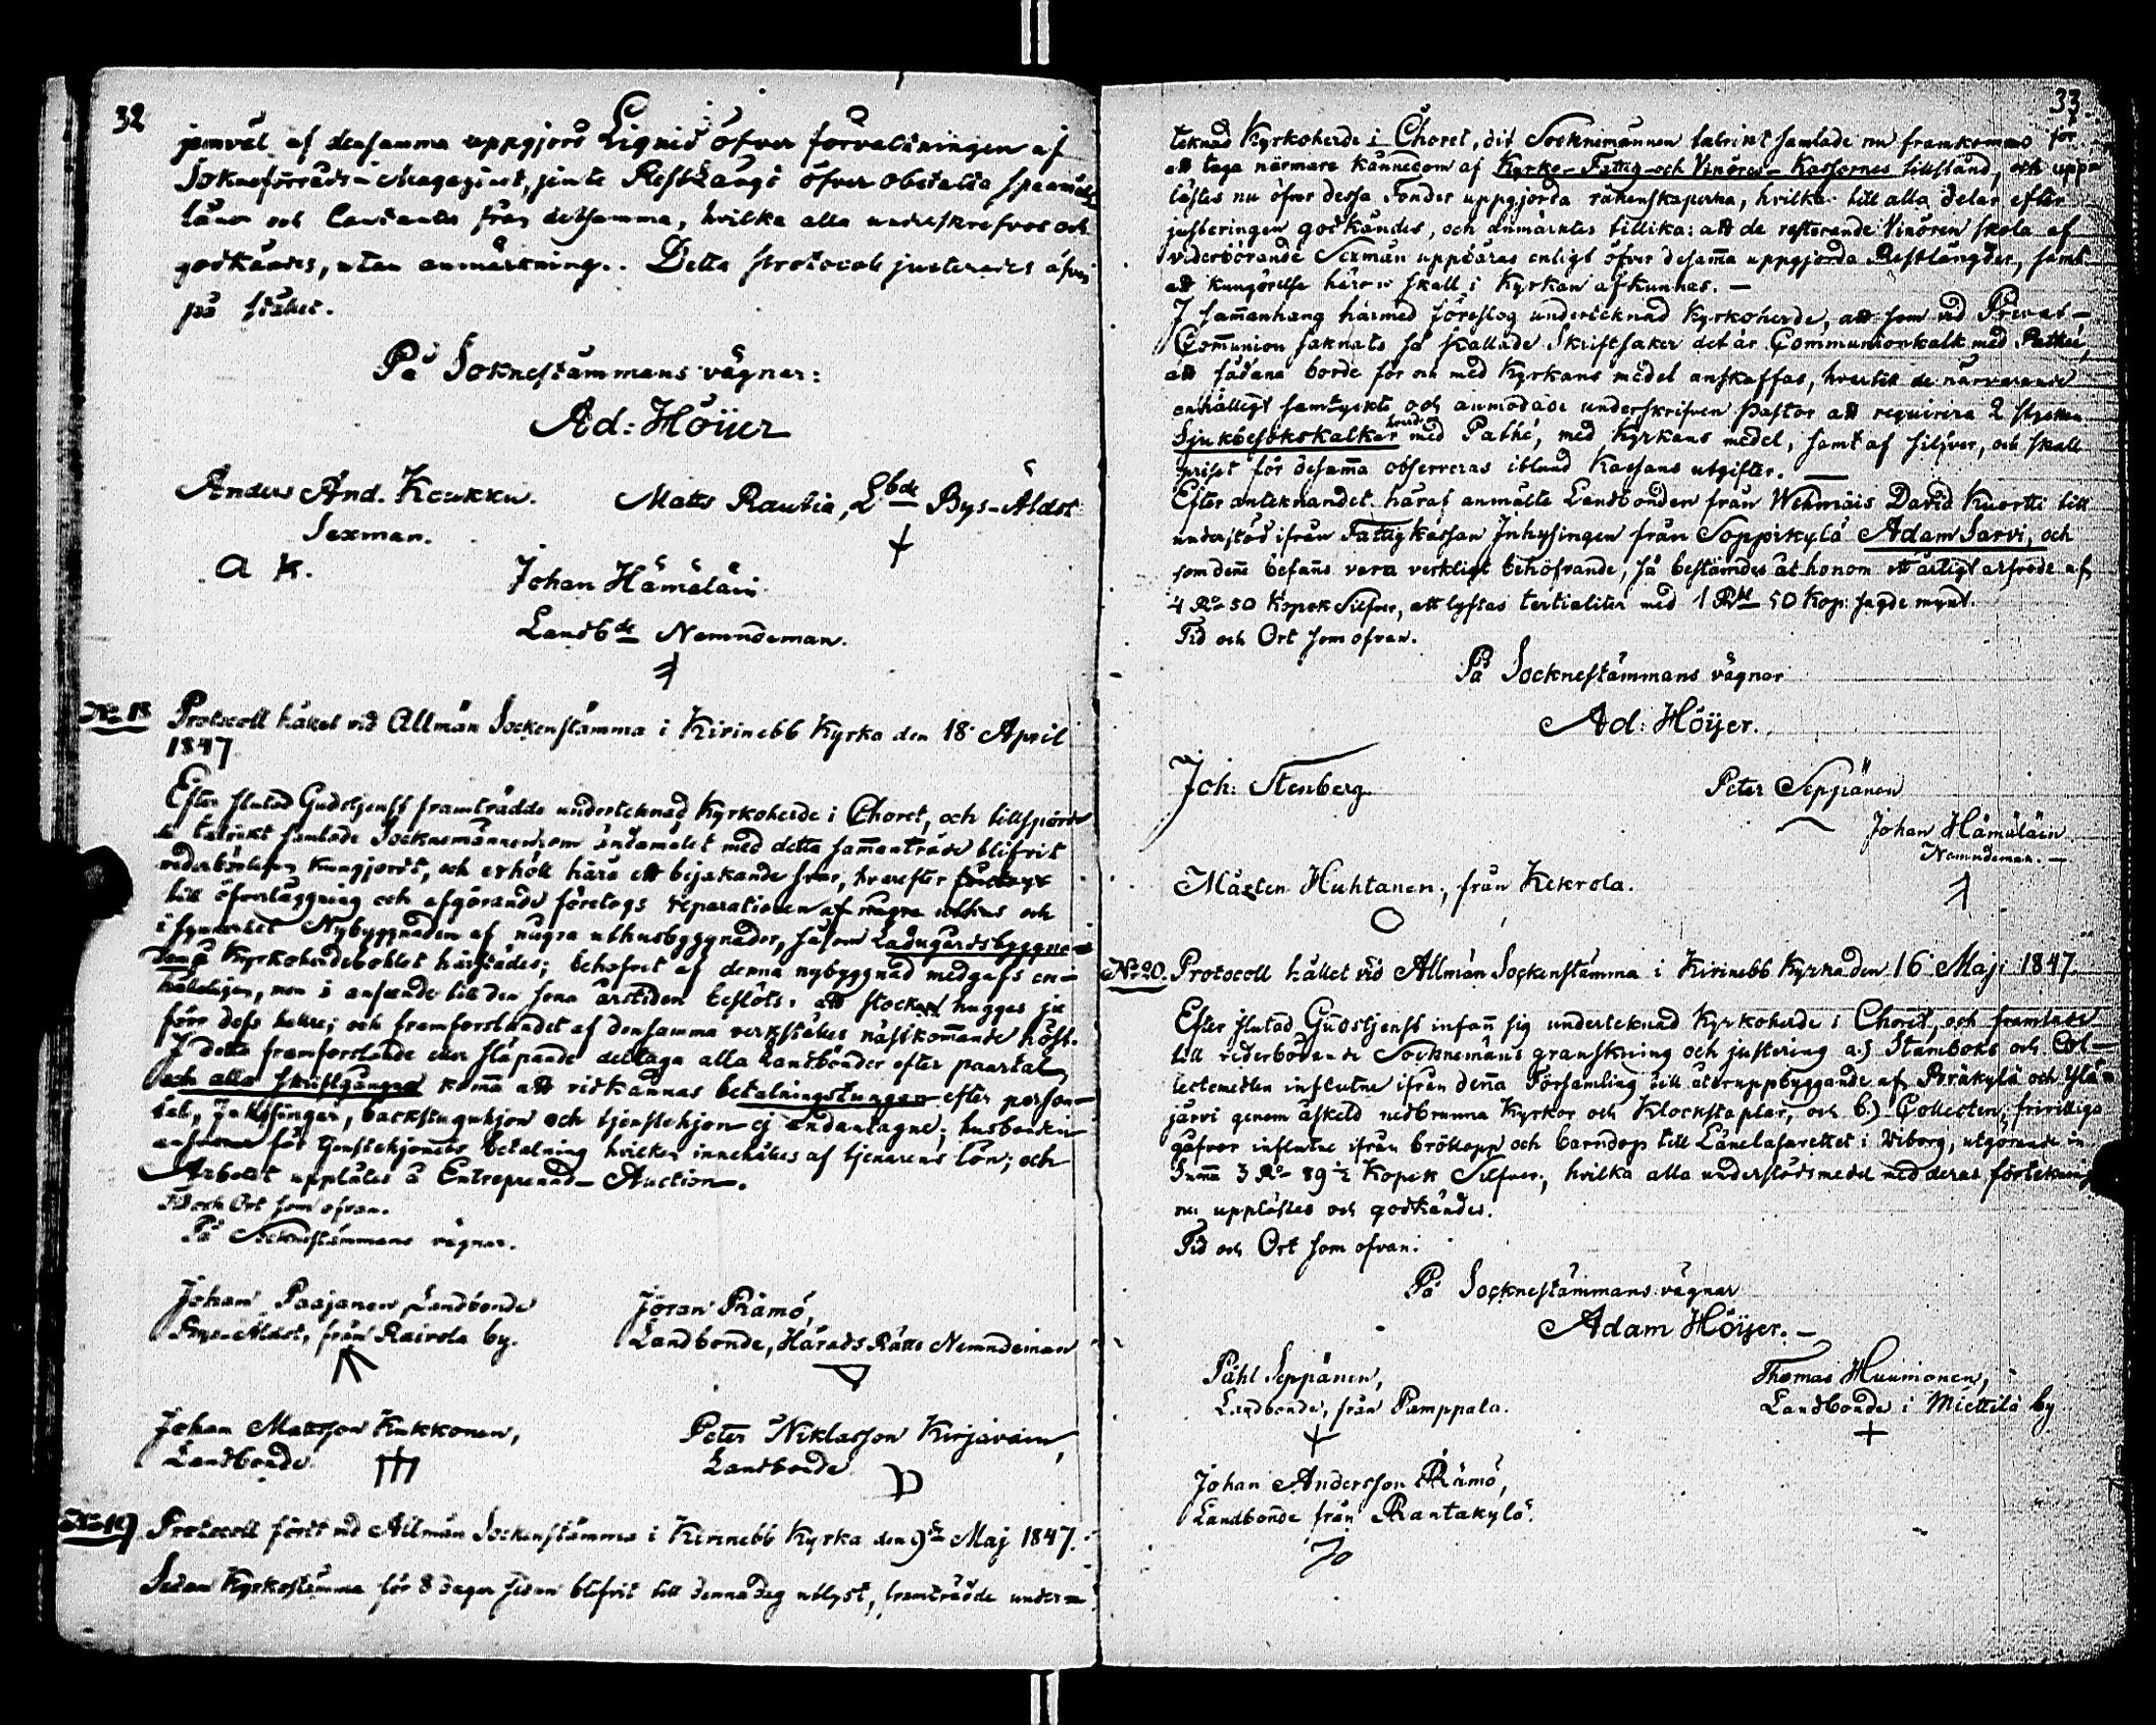 32
jemväl af densamma uppgjord Liqvid öfver förvaltningen af
Sokneförråds-Magazinet, jemte Restlängd öfver obetalta spanmåls
lånen och Caution från detsamma, hvilka alla underskrefvos och
godkändes, utan anmärkning. Detta protocoll justerades äfven
på stället.
På Soknestämmans vägnar:
Ad: Höijer
Anders And. Koukku.
Sexman.
A K.
Matts Rautia, Lbde Bys-Äldst
Johan Hämäläin
Landbde Nemndeman.
No 18 Protocoll hållet vid Allmän Sockenstämma i Kirinebb Kyrka den 18 April
1847
Efter slutad Gudstjenst framträdde undertecknad Kyrkoherde i Choret, och tillsporde
de talrikt samlade Socknemännen om ändamålet med detta sammanträde blifvit
vederbörligen kungjordt, och erhöll härå ett bejakande svar, hvarefter
till öfverläggning och afgörande företogs reparationen af några uthus och
i synnerhet Nybyggnaden af några uthusbyggnader, såsom Ladugårdsbyggna-
den å Kyrkoherdebohlet härstädes; behofvet af denna nybyggnad medgafs en-
hälleligen, men i anseende till den sena årstiden beslöts: att stocken hugges ju
förr dess hellre; och framforslandet af densamma verkställes nästkommande höst.
I detta framforslande eller släpande deltaga alla Landbönder efter paartal
och alla skriftgångne komma att vidkännas betalningstungan efter person-
tal, Inhysingar, backstuguhjon och tjenstehjon ej undantagne; husbonden
ansvarar för tjenstehjonets betalning hvilken innehålles af tjenarens lön; och
Arbetet upplåtes å Entreprenad-Auction.
Tid och Ort som ofvan.
På Socknestämmans vägnar.
Johan Paajanen Landbonde
Bys-Äldst, från Rairola by.
Jöran Rämö,
Landbonde, Härads Rätts Nemndeman
Johan Mattsson Kukkonen,
Landbonde
Peter Niklasson Kirjavain,
Landbonde
No 19 Protocoll fördt vid Allmän Sockenstämma i Kirinebb Kyrka den 9de Maj 1847.
Sedan Kyrkostämma för 8 dagar sedan blifvit till denna dag utlyst, framträdde under-
33
teknad Kyrkoherde i Choret, dit Socknemännen talrikt samlade nu framkommo för
att taga närmare kännedom af Kyrko- Fattig- och Vinöres- Kassornes tillstånd, och upp-
lästes nu öfver dessa Fonder uppgjorda räkenskaperna, hvilka till alla delar efter
justeringen godkändes, och anmärktes tillika: att de resterande Vinören skola af
vederbörande Sexmän uppbäras enligt öfver desamma uppgjorda Restlängder, samt
att kungörelse härom skall i Kyrkan afkunnas. —
I sammanhang härmed föreslog undertecknad Kyrkoherde, att som vid Privat-
Communion saknats så kallade Skriftsaker det är Communionkalk med Pathé,
att sådana borde för nu med Kyrkans medel anskaffas, hvartill de närvarande
enhälligt samtyckte, och anmodade underskrifven Pastor att requirera 2 stycken
Sjukbesökskalkar hvardera med Pathé, med Kyrkans medel, samt af silfver, och skall
priset för desamma observeras ibland Kassans utgifter. —
Efter antecknandet häraf anmälte Landbonden från Wehmais David Kuortti till
understöd ifrån Fattigkassan Inhysingen från Soppikylä Adam Sarvi, och
som denne befanns vara verkligt behöfvande, så bestämdes åt honom ett årligt arfvode af
4 Ro 50 Kopek Silfver, att lyftas tertialiter med 1 Rbl 50 Kop: sagde mynt.
Tid och Ort som ofvan.
På Socknestämmans vägnar
Ad: Höijer.
Joh: Stenberg
Peter Seppänen
Johan Hämäläin
Nemndeman. —
Mårten Huhtanen, från Kekrola.
No 20. Protocoll hållet vid Allmän Sockenstämma i Kirinebb Kyrka den 16 Maj 1847.
Efter slutad Gudstjenst infann sig undertecknad Kyrkoherde i Choret, och framlade
till vederbörande Socknemäns granskning och justering a.) Stamboks och Col-
lectmedlen influtne ifrån denna Församling till återuppbyggande af Pyräkylä och Ylä-
järvi genom åskeld nedbrunna Kyrkor och Klockstaplar, och b.) Collecten, frivilliga
gåfvor influtne ifrån bröllopp och barndop till Länelasarettet i Wiborg, utgörande in
Summa 3 Ro 89 ½ Kopek Silfver, hvilka alla understödsmedel med deras förtekning
nu upplästes och godkändes.
Tid och Ort som ofvan.
På Socknestämmans vägnar
Adam Höijer. —
Påhl Seppänen,
Landbonde, från Pamppala.
Thomas Huumonen,
Landbonde i Miettilä by
Johan Andersson Rämö,
Landbonde från Rantakylä.